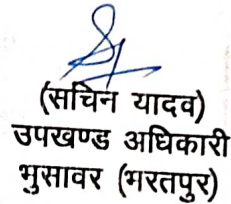 (सचिन यादव)
उपखण्ड अधिकारी
भुसावर (भरतपुर)